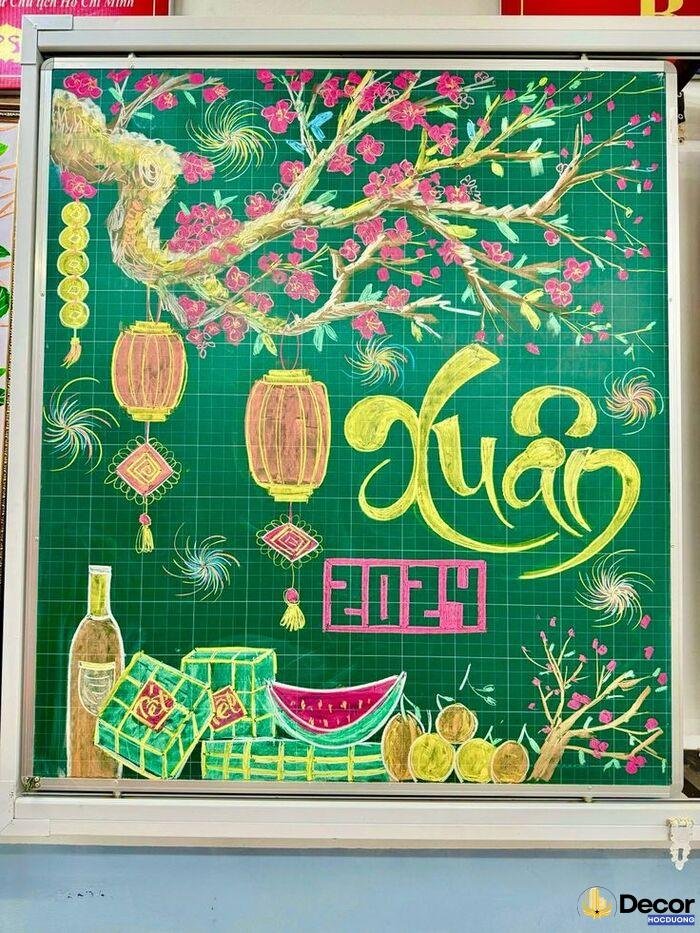 Chủ tịch Hồ Chí Minh
Xuân
2024
Decor
HOCDUONG